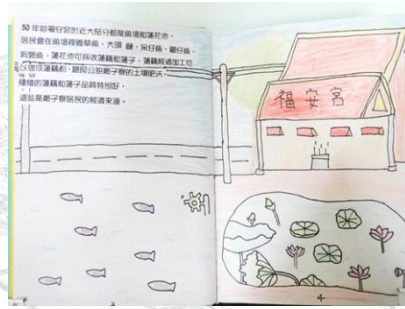 50年前福安宮附近大部分都是魚塭和蓮花池。
居民會在魚塭裡養草魚、大頭鰱、呆仔魚、鯽仔魚、
飼鴨魚。蓮花池可採收蓮藕和蓮子,蓮藕經過加工可
以做成蓮藕粉,聽阿公說廍子寮的土壤肥沃,
種植的蓮藕和蓮子品質特別好,
這些是廍子寮居民的經濟來源。
福安宮
3
4